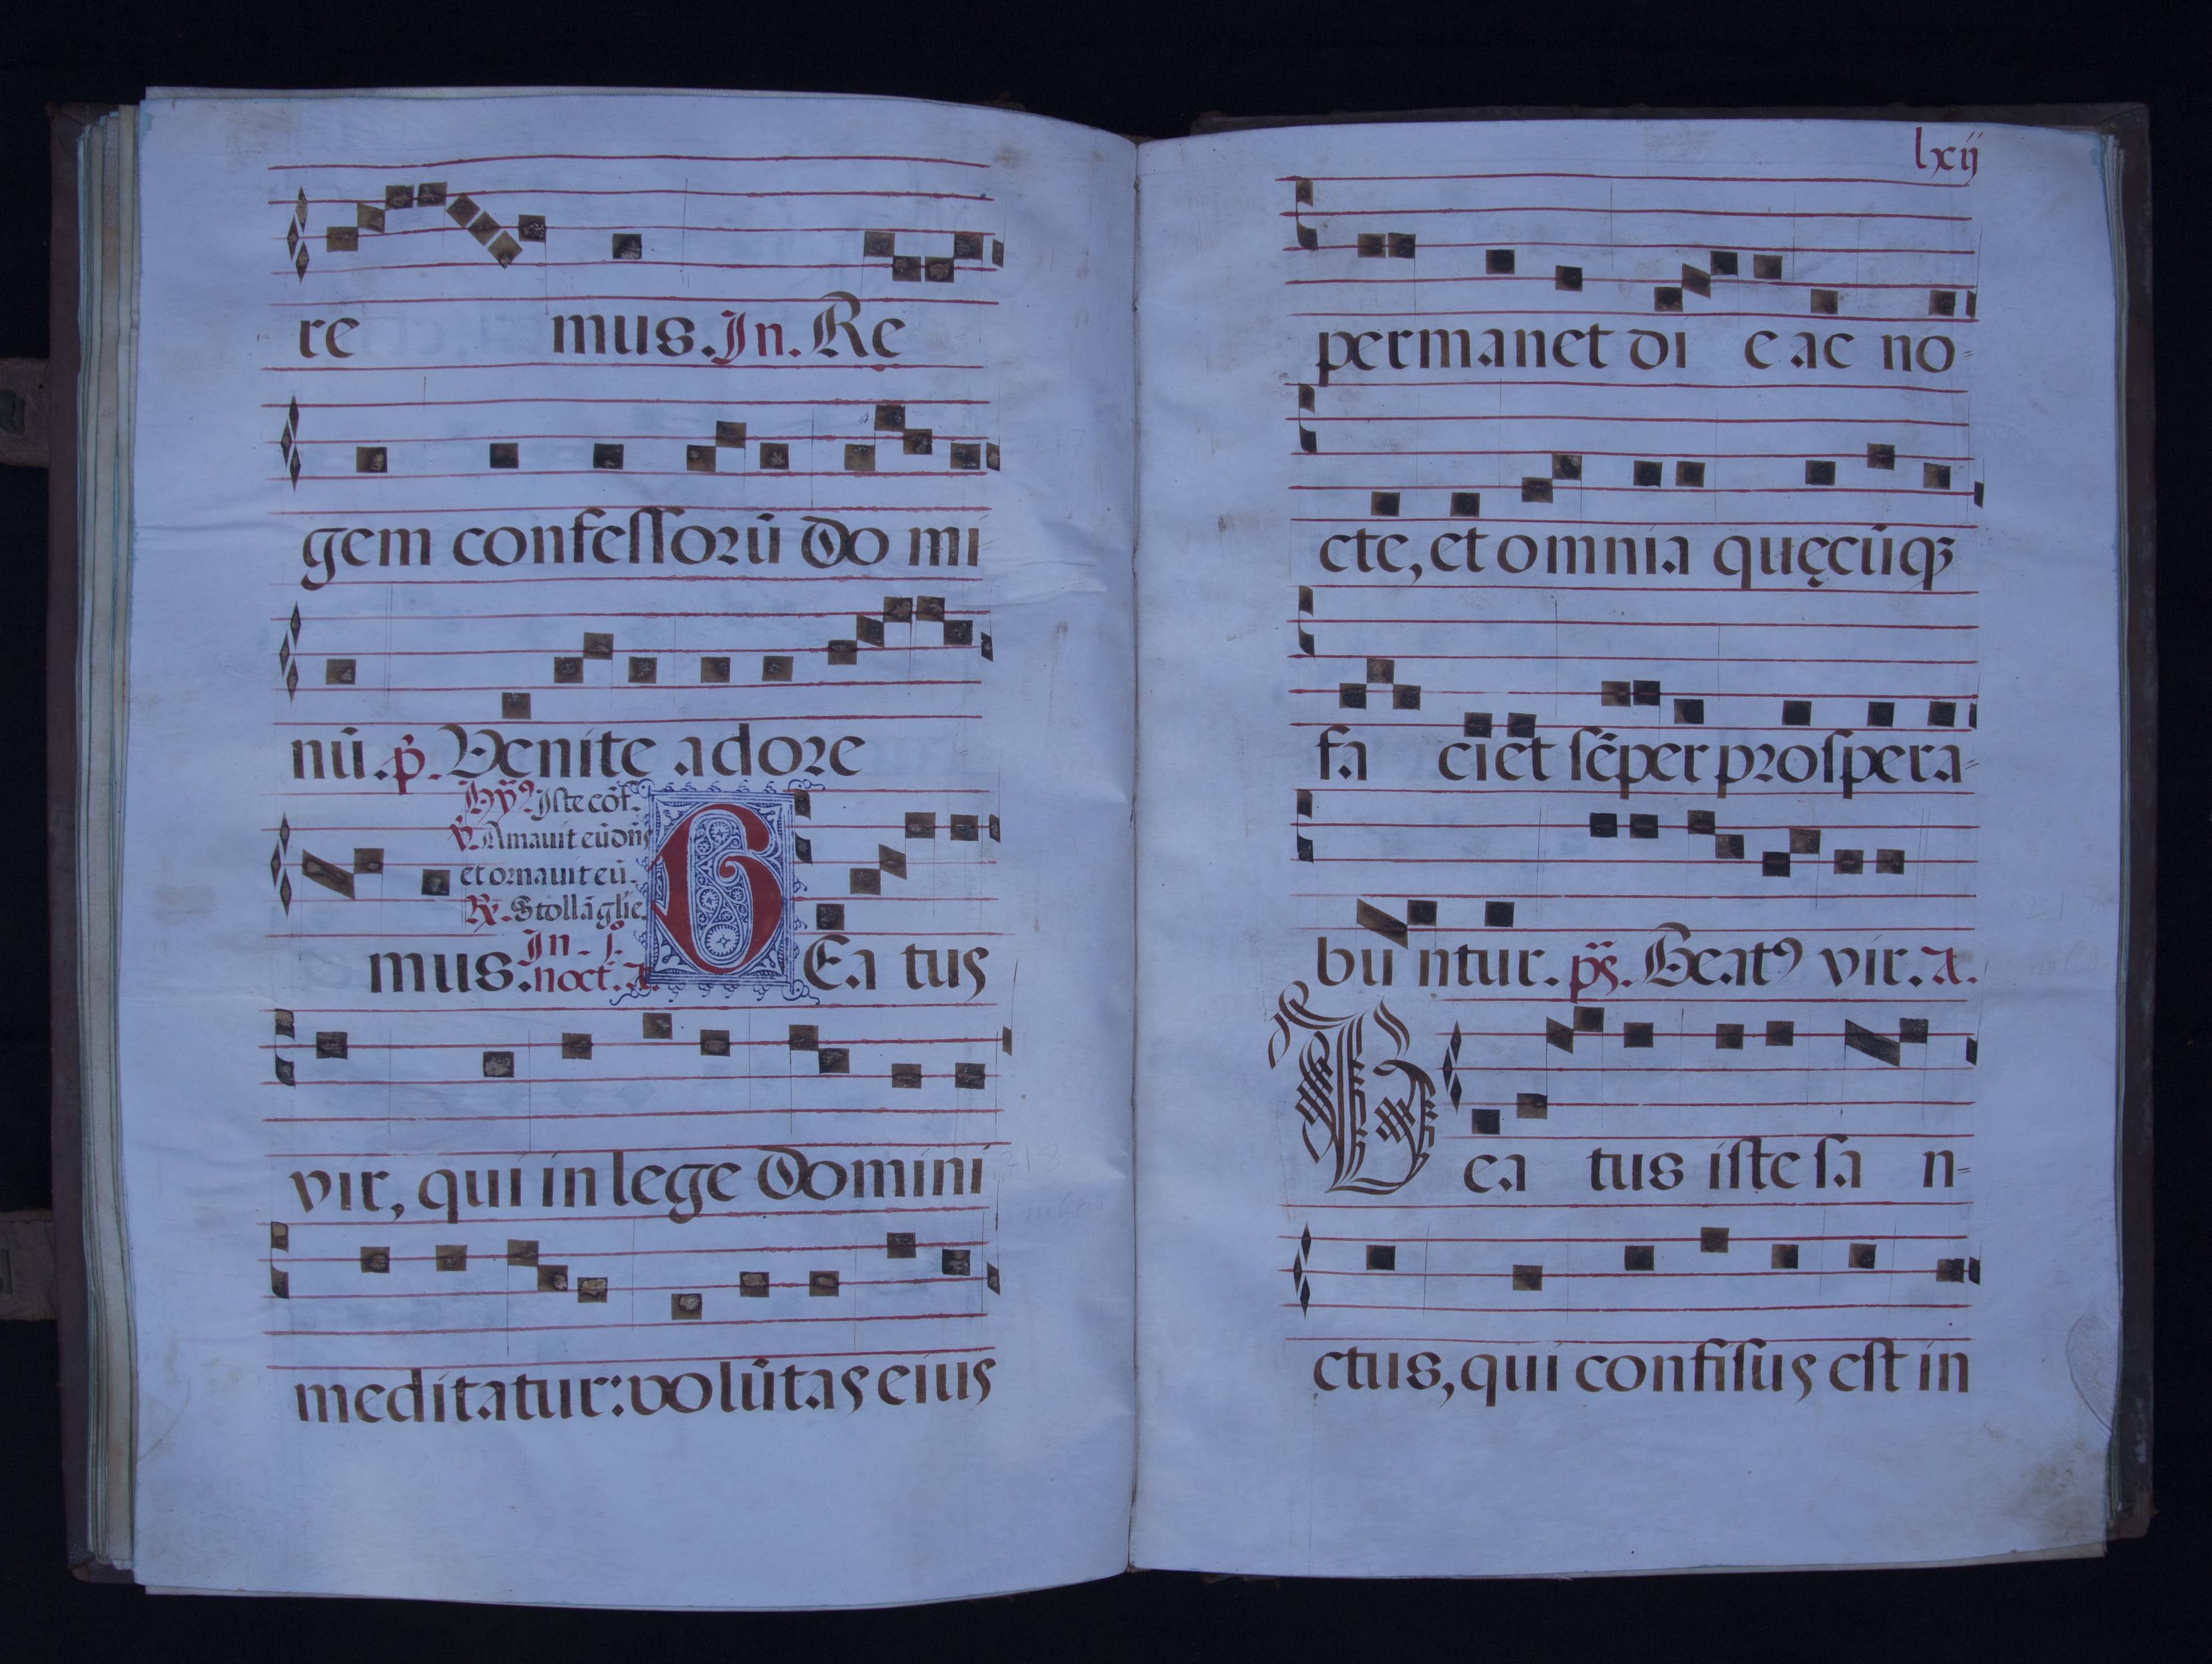 re mus. In. Re
gem confessorū Do mi
nū. p̄. Venite adore
Hỹ⁹. Iste cōf.
℣. Amavit eū dn̄s
et ornavit eū.
℟. Stollā glīe.
mus. In. j.
noct. A. B Ea tus
vir, qui in lege Domini
meditatur: volūtas eius
lxij
permanet di e ac no-
cte, et omnia quęcūqꝫ
fa ciet sēper prospera-
bu ntur. ps̄. Beat⁹ vir. A.
B ea tus iste sa n-
ctus, qui confisus est in